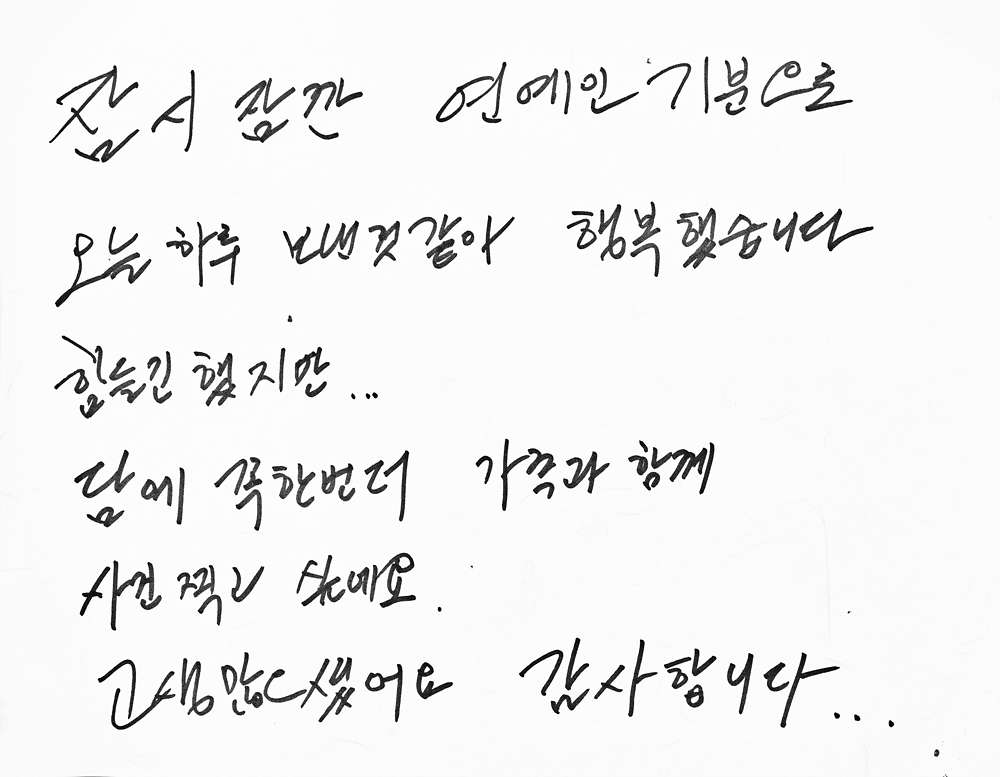 잠시 잠깐 연예인 기분으로
오늘 하루 보낸것같아 행복했습니다
힘들긴 했지만...
담에 꼭한번더 가족과 함께
사진찍고 싶네요.
고생많으셨어요 감사합니다...